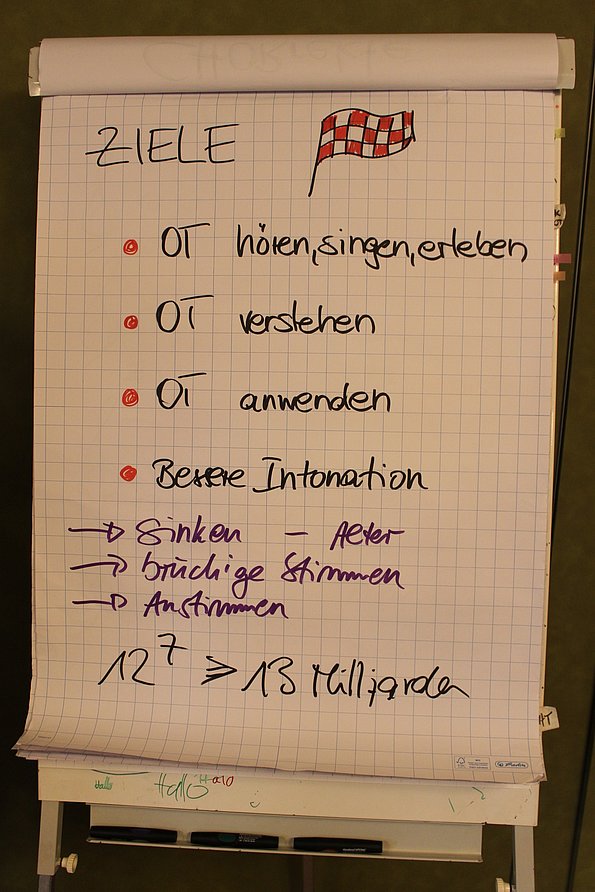 ZIELE
OT hören, singen, erleben
OT verstehen
OT anwenden
Bessere Intonation
→ Sinken – Alter
→ brüchige Stimmen
→ Anstimmen
12⁷ ≥ 13 Milljarden
Hallo Hallo